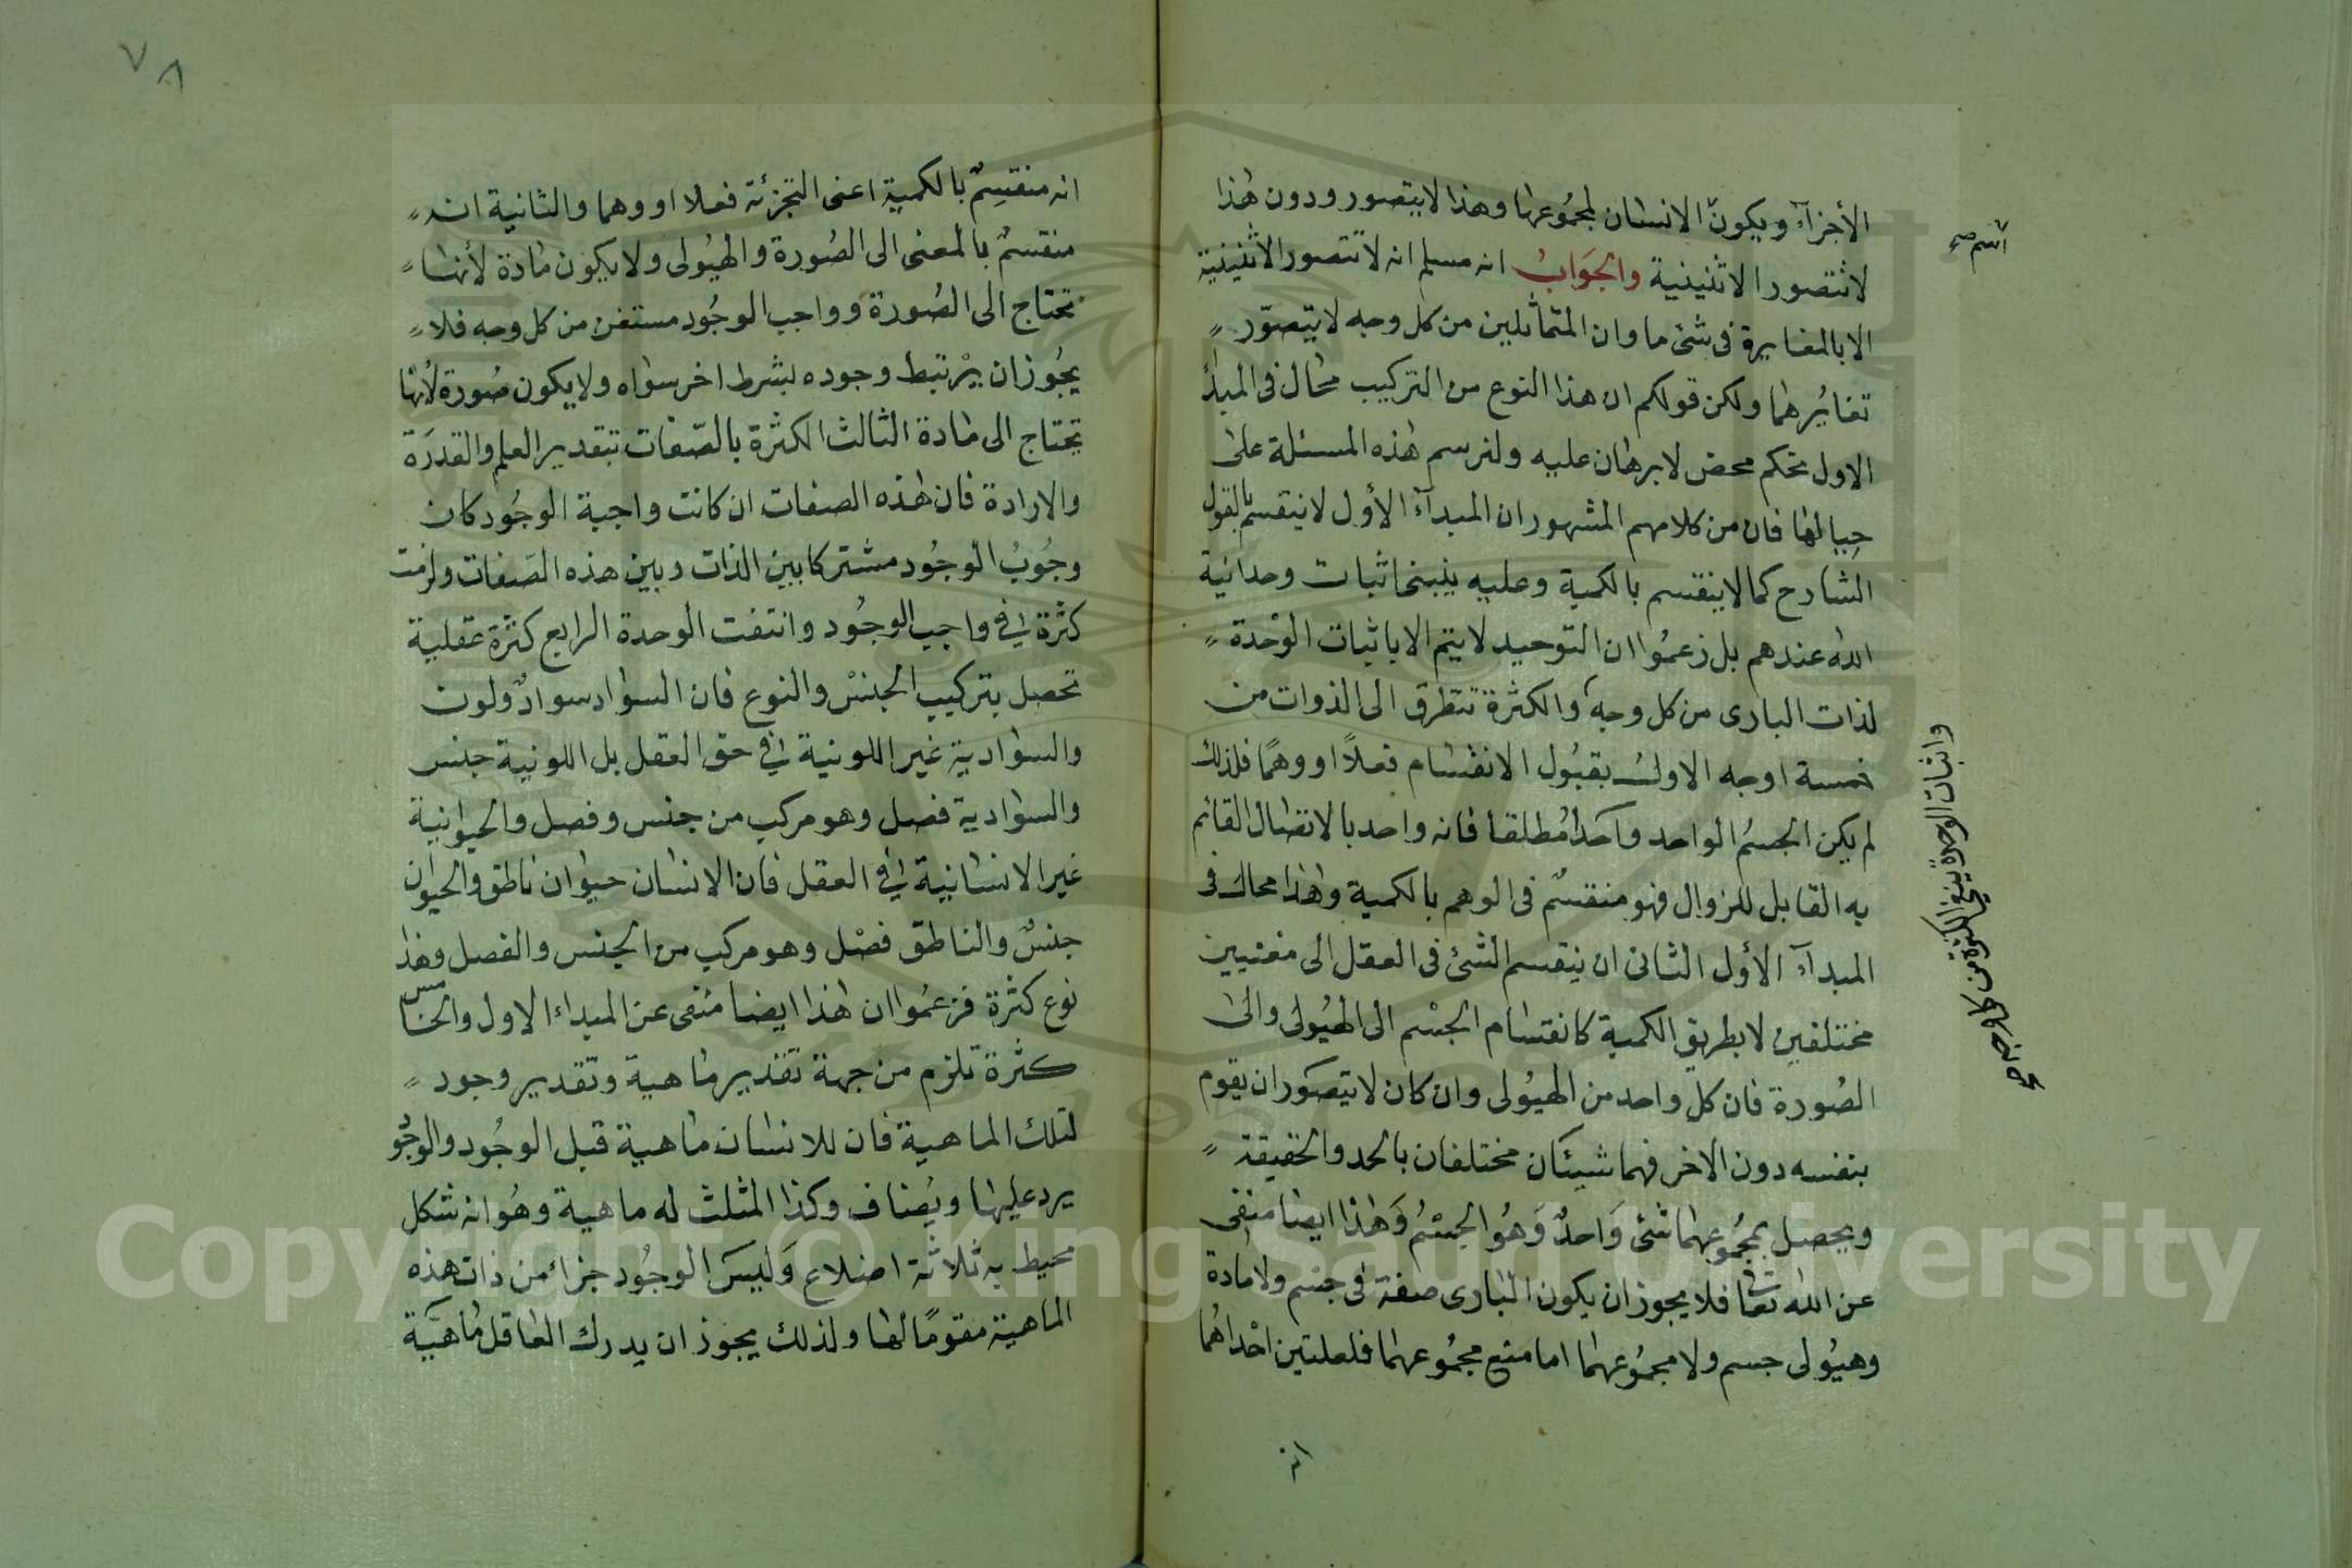 الأجزآء ويكون الانسان لمجموعها وهذا لا يتصور ودون هذا
لا تتصور الاثنينية والجواب انه مسلم انه لا تتصور الاثنينية
الا بالمغايرة فى شئ ما وان المتماثلين من كل وجه لا يتصور
تغايرهما ولكن قولكم ان هذا النوع من التركيب محال فى المبدأ
الاول تحكم محض لا برهان عليه ولنرسم هذه المسئلة على
حيالها فان من كلامهم المشهور ان المبدآء الأول لا ينقسم بالقول
الشارح كما لا ينقسم بالكمية وعليه ينبنى اثبات وحدانية
الله عندهم بل زعموا ان التوحيد لا يتم الا باثبات الوحدة
لذات البارى من كل وجه والكثرة تتطرق الى الذوات من
خمسة اوجه الاول بقبول الانقسام فعلاً او وهمًا فلذلك
لم يكن الجسم الواحد واحدا مُطلقا فانه واحد بالاتصال القائم
به القابل للزوال فهو منقسم فى الوهم بالكمية وهذا محال فى
المبدآء الأول الثانى ان ينقسم الشئ فى العقل الى معنيين
مختلفين لا بطريق الكمية كانقسام الجسم الى الهيولى والى
الصورة فان كل واحد من الهيولى وان كان لا يتصور ان يقوم
بنفسه دون الاخر فهما شيئان مختلفان بالحد والحقيقة
ويحصل بمجموعهما شئ وَاحدٌ وَهُو الجسْمُ وَهذا ايضا منفى
عن الله تعا فلا يجوز ان يكون البارى صفة فى جسم ولا مادة
وهيولى جسم ولا مجموعهما اما منع مجموعهما فلعلتين احداهما
انه
واثبات الوحدة ينفى الكثرة من كل وجه صح
٧٨
انه منقسِمٌ بالكمية اعنى التجزئة فعلا او وهما والثانية انه
منقسمٌ بالمعنى الى الصُورة والهيُولى ولا يكون مادة لأنها
تحتاج الى الصُورة وواجب الوجُود مستغن من كل وجه فلا
يجُوز ان يرْتبط وجوده بشرط اخر سواه ولا يكون صُورة لأنها
تحتاج الى مادة الثالث الكثرة بالصّفات بتقدير العلم والقدرَة
والارادة فان هذه الصفات ان كانت واجبة الوجُود كان
وجُوبُ الوجُود مشتركا بين الذات وبين هذه الصّفات ولزمت
كثرة في واجب الوجُود وانتفت الوحدة الرابع كثرة عقلية
تحصل بتركيب الجنسْ والنوع فان السواد سوادٌ ولون
والسوادية غير اللونية في حق العقل بل اللونية جنس
والسوادية فصل وهو مركب من جنس وفصل والحيوانية
غير الانسانية في العقل فان الانسان حيوان ناطق والحيوان
جنسٌ والناطق فصْل وهو مركب من الجنس والفصل وهذا
نوع كثرة فزعمُوا ان هذا ايضا منفى عن المبداء الاول والخامس
كثرة تلزم من جهة تقدير ماهية وتقدير وجود
لتلك الماهية فان للانسان ماهية قبل الوجُود والوجُود
يرد عليها ويُضاف وكذا المثلث له ماهية وهُو انه شكل
محيط به ثلاثة اضلاع وَليسَ الوجُود جزاء من ذات هذه
الماهية مقومًا لها ولذلك يجوز ان يدرك العاقل مَاهيَة
Copyright © King Saud University